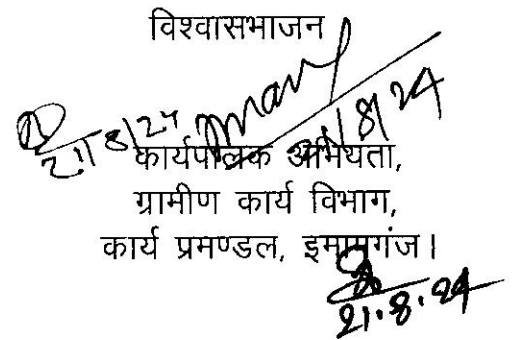 विश्वासभाजन
21/8/24
21/8/24
कार्यपालक अभियंता,
ग्रामीण कार्य विभाग,
कार्य प्रमण्डल, इमामगंज।
21.8.24